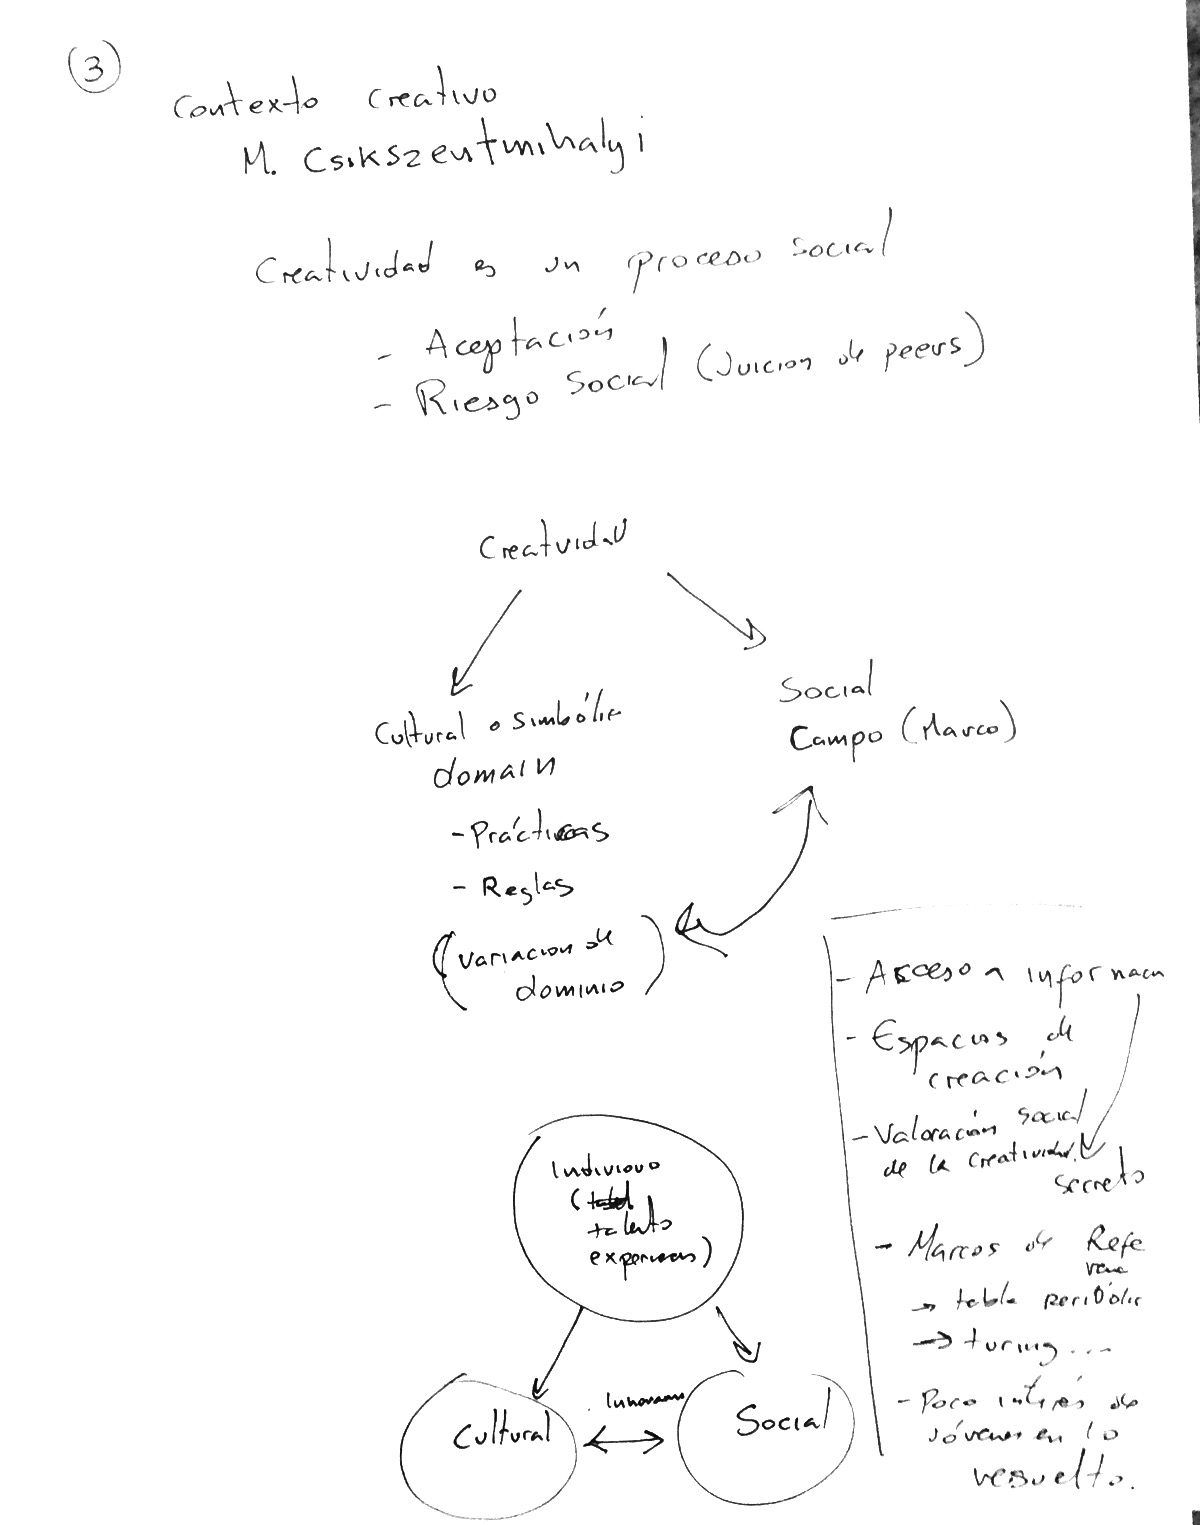 3
Contexto creativo
M. Csikszentmihalyi
Creatividad es un proceso social
- Aceptación
- Riesgo Social (Juicion de peers)
Creatvidad
Cultural o simbólic
domain
- Prácticas
- Reglas
(variacion de
dominio)
Social
Campo (Marco)
- Acceso a informacn
- Espacios de
creación
- Valoración social
de la creatividad.
secreto
- Marcos de Refe
renc
→ tabla periódic
→ turing ...
- Poco interés de
jóvenes en lo
resuelto.
Individuo
(
talento
experiencas)
Cultural
Social